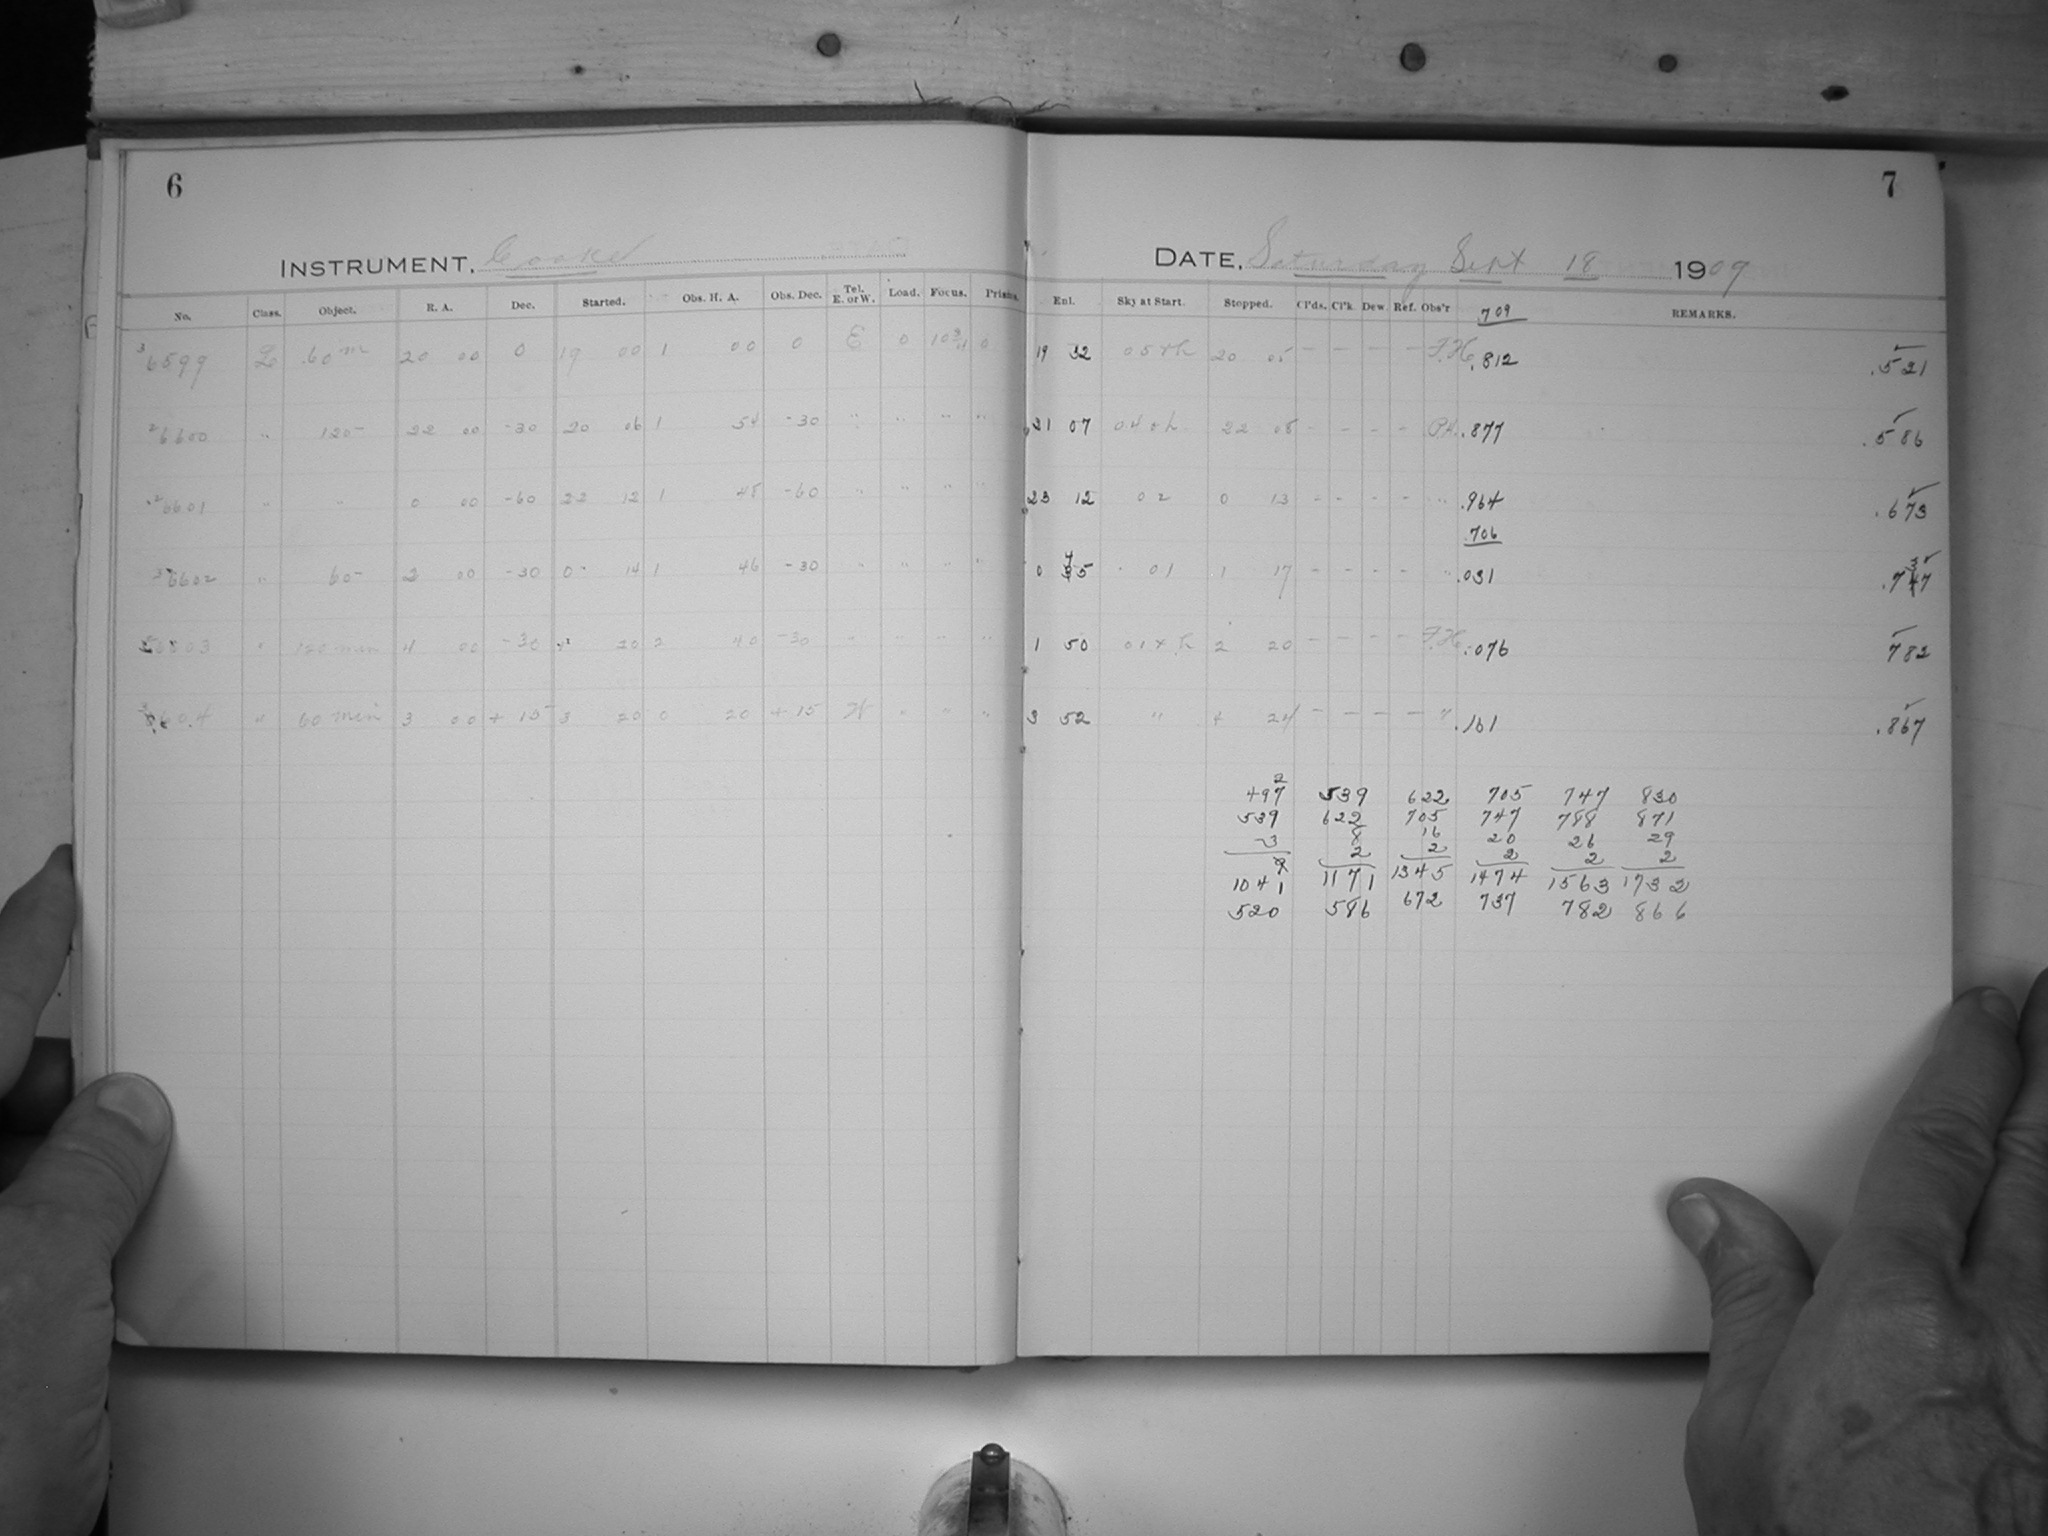 6 7
INSTRUMENT, Cooke DATE, Saturday Sept 18 1909
No. Class. Object. R. A. Dec. Started. Obs. H. A. Obs. Dec. Tel. E. or W. Load. Focus. Enl. Sky at Start. Stopped. Cl'ds. Cl'k. Dew. Ref. Obs'r 709 REMARKS.
6599 L 60 m 20 00 0 19 00 1 00 0 E 0 19 32 20 05 — — — — F.H. .812 .521
6600 " 120 22 00 -30 20 06 1 54 -30 " " " " 21 07 22 08 - - - - .877 .586
6601 " " 0 00 -60 22 12 1 48 -60 " " " " 23 12 02 0 13 - - - - " .964 .673
706
6602 " 60 2 00 -30 0 14 1 46 -30 " " " " 0 01 1 17 - - - - " .031
" 120 min 4 00 -30 20 2 40 -30 " " " " 1 50 2 20 — — — — F.H. .076 782
" 60 min 3 00 + 15 3 20 0 20 +15 W " " " 3 52 " 4 24 — — — — " .161 .867
497 539 622 705 747 830
539 622 705 747 788 871
3 8 16 20 26 29
2 2 2 2 2 2
1041 1171 1345 1474 1563 1732
520 586 672 737 782 866